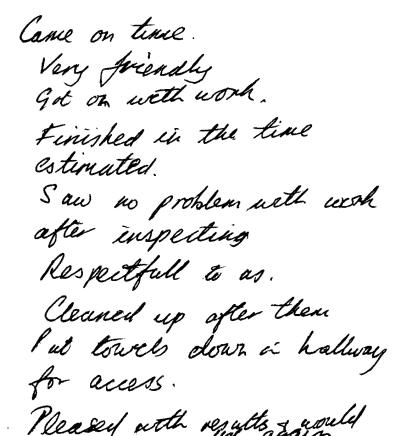 Came on time.
Very friendly
Got on with work.
Finished in the time
estimated.
Saw no problem with work
after inspecting
Respectfull to us.
Cleaned up after them
Put towels down in hallway
for access.
Pleased with results & would